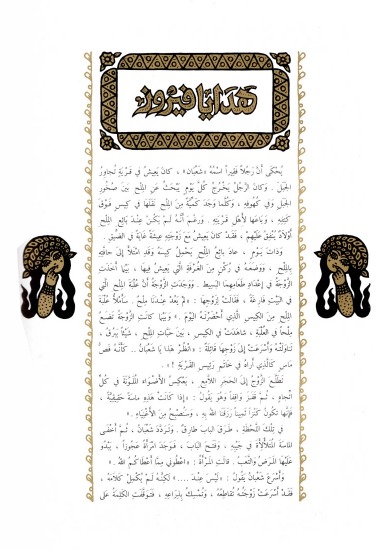 هدايا فيروز
يُحْكَى أَنَّ رَجُلاً فَقِيراً اسْمُهُ « شَعْبَان » ، كَانَ يَعِيشُ فِي قَرْيَةٍ تُجَاوِرُ
الجَبَلَ . وَكَانَ الرَّجُلُ يَخْرُجُ كُلَّ يَوْمٍ يَبْحَثُ عَنِ المِلْحِ بَيْنَ صُخُورِ
الجَبَلِ وَفِي كُهُوفِهِ ، وَكُلَّمَا وَجَدَ كَمِّيَّةً مِنَ المِلْحِ نَقَلَهَا فِي كِيسٍ فَوْقَ
كَتِفِهِ ، وَبَاعَهَا لِأَهْلِ قَرْيَتِهِ . وَرَغْمَ أَنَّهُ لَمْ يَكُنْ عِنْدَ بَائِعِ المِلْحِ
أَوْلَادٌ يُنْفِقُ عَلَيْهِمْ ، فَقَدْ كَانَ يَعِيشُ مَعَ زَوْجَتِهِ عِيشَةً غَايَةً فِي الضِّيقِ .
وَذَاتَ يَوْمٍ ، عَادَ بَائِعُ المِلْحِ يَحْمِلُ كِيسَهُ وَقَدِ امْتَلَأَ إِلَى حَافَتِهِ
بِالمِلْحِ ، وَوَضَعَهُ فِي رُكْنٍ مِنَ الغُرْفَةِ الَّتِي يَعِيشُ فِيهَا ، بَيْنَمَا أَخَذَتِ
الزَّوْجَةُ فِي إِعْدَادِ طَعَامِهِمَا البَسِيطِ . وَوَجَدَتِ الزَّوْجَةُ أَنَّ عُلْبَةَ المِلْحِ الَّتِي
فِي البَيْتِ فَارِغَةٌ ، فَقَالَتْ لِزَوْجِهَا : « لَمْ يَعُدْ عِنْدَنَا مِلْحٌ . سَأَمْلَأُ عُلْبَةَ
المِلْحِ مِنَ الكِيسِ الَّذِي أَحْضَرْتَهُ اليَوْمَ . » وَبَيْنَمَا كَانَتِ الزَّوْجَةُ تَضَعُ
مِلْحاً فِي العُلْبَةِ ، شَاهَدَتْ فِي الكِيسِ ، بَيْنَ حَبَّاتِ المِلْحِ ، شَيْئاً يَبْرُقُ ،
تَنَاوَلَتْهُ وَأَسْرَعَتْ إِلَى زَوْجِهَا قَائِلَةً : « انْظُرْ هَذَا يَا شَعْبَانُ .. كَأَنَّهُ فَصُّ
مَاسٍ كَالَّذِي أَرَاهُ فِي خَاتَمِ رَئِيسِ القَرْيَةِ !! » .
تَطَلَّعَ الزَّوْجُ إِلَى الحَجَرِ اللَّامِعِ ، يَعْكِسُ الأَضْوَاءَ المُلَوَّنَةَ فِي كُلِّ
اتِّجَاهٍ ، ثُمَّ قَفَزَ وَاقِفاً وَهُوَ يَقُولُ : « إِذَا كَانَتْ هَذِهِ مَاسَةً حَقِيقِيَّةً ،
فَإِنَّهَا تَكُونُ كَنْزاً ثَمِيناً رَزَقَنَا اللهُ بِهِ ، وَسَنُصْبِحُ مِنَ الأَغْنِيَاءِ . »
فِي تِلْكَ اللَّحْظَةِ ، طَرَقَ البَابَ طَارِقٌ . وَتَرَدَّدَ شَعْبَانُ ، ثُمَّ أَخْفَى
المَاسَةَ المُتَلَأْلِئَةَ فِي جَيْبِهِ ، وَفَتَحَ البَابَ ، فَوَجَدَ امْرَأَةً عَجُوزاً ، يَبْدُو
عَلَيْهَا المَرَضُ وَالتَّعَبُ . قَالَتِ المَرْأَةُ : « أَعْطُونِي مِمَّا أَعْطَاكُمُ اللهُ . »
وَأَسْرَعَ شَعْبَانُ يَقُولُ : « لَيْسَ عِنْدَ .... » لَكِنَّهُ لَمْ يُكْمِلْ كَلَامَهُ ،
فَقَدْ أَسْرَعَتْ زَوْجَتُهُ تُقَاطِعُهُ ، وَتُمْسِكُ بِذِرَاعِهِ ، فَتَوَقَّفَتِ الكَلِمَةُ عَلَى